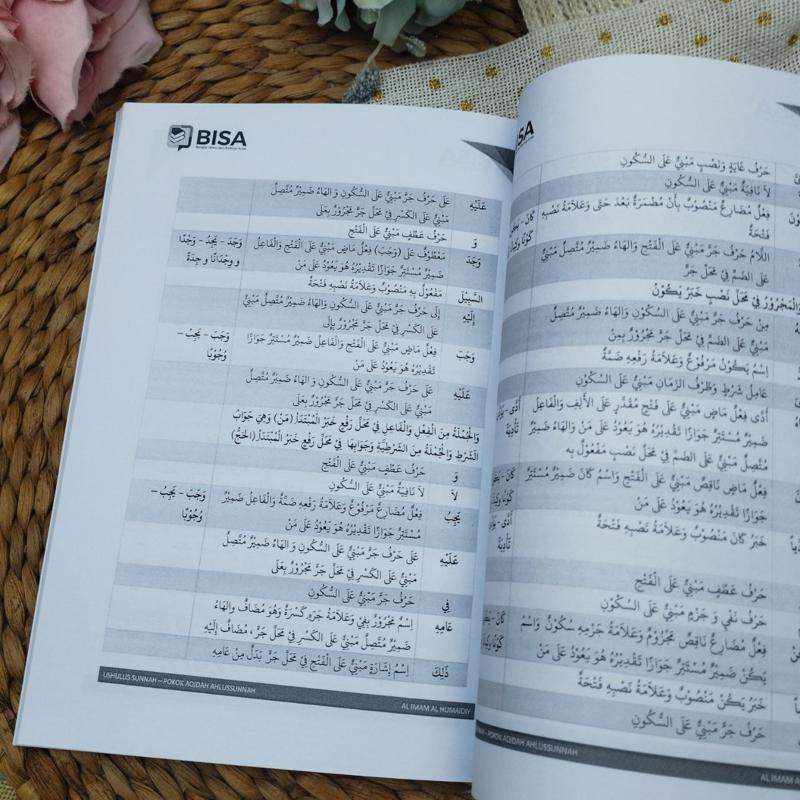 BISA
عَلَيْهِ عَلَى حَرْفُ جَرٍّ مَبْنِيٌّ عَلَى السُّكُونِ وَ الهَاءُ ضَمِيْرٌ مُتَّصِلٌ
مَبْنِيٌّ عَلَى الْكَسْرِ فِيْ مَحَلِّ جَرٍّ مَجْرُوْرٌ بِعَلَى
وَ حَرْفُ عَطْفٍ مَبْنِيٌّ عَلَى الْفَتْحِ
وَجَدَ مَعْطُوْفٌ عَلَى (وَجَبَ) فِعْلٌ مَاضٍ مَبْنِيٌّ عَلَى الْفَتْحِ وَالْفَاعِلُ وَجَدَ – يَجِدُ – وَجْدًا
ضَمِيْرٌ مُسْتَتِرٌ جَوَازًا تَقْدِيْرُهُ هُوَ يَعُوْدُ عَلَى مَنْ و وِجْدَانًا و جِدَةً
السَّبِيْلَ مَفْعُوْلٌ بِهِ مَنْصُوْبٌ وَعَلَامَةُ نَصْبِهِ فَتْحَةٌ
إِلَيْهِ إِلَى حَرْفُ جَرٍّ مَبْنِيٌّ عَلَى السُّكُونِ وَالْهَاءُ ضَمِيْرٌ مُتَّصِلٌ مَبْنِيٌّ
عَلَى الْكَسْرِ فِيْ مَحَلِّ جَرٍّ مَجْرُوْرٌ بِإِلَى
وَجَبَ فِعْلٌ مَاضٍ مَبْنِيٌّ عَلَى الْفَتْحِ وَالْفَاعِلُ ضَمِيْرٌ مُسْتَتِرٌ جَوَازًا وَجَبَ – يَجِبُ –
تَقْدِيْرُهُ هُوَ يَعُوْدُ عَلَى مَنْ وُجُوْبًا
عَلَيْهِ عَلَى حَرْفُ جَرٍّ مَبْنِيٌّ عَلَى السُّكُونِ وَ الهَاءُ ضَمِيْرٌ مُتَّصِلٌ
مَبْنِيٌّ عَلَى الْكَسْرِ فِيْ مَحَلِّ جَرٍّ مَجْرُوْرٌ بِعَلَى
وَالْجُمْلَةُ مِنَ الْفِعْلِ وَالْفَاعِلِ فِيْ مَحَلِّ رَفْعٍ خَبَرُ الْمُبْتَدَأِ (مَنْ) وَهِيَ جَوَابُ
الشَّرْطِ وَالْجُمْلَةُ مِنَ الشَّرْطِيَّةِ وَجَوَابِهَا فِيْ مَحَلِّ رَفْعٍ خَبَرُ الْمُبْتَدَأِ (الحَجُّ)
وَ حَرْفُ عَطْفٍ مَبْنِيٌّ عَلَى الْفَتْحِ
لَا لَا نَافِيَةٌ مَبْنِيٌّ عَلَى السُّكُونِ
يَجِبُ فِعْلٌ مُضَارِعٌ مَرْفُوْعٌ وَعَلَامَةُ رَفْعِهِ ضَمَّةٌ وَالْفَاعِلُ ضَمِيْرٌ وَجَبَ – يَجِبُ –
مُسْتَتِرٌ جَوَازًا تَقْدِيْرُهُ هُوَ يَعُوْدُ عَلَى مَنْ وُجُوْبًا
عَلَيْهِ عَلَى حَرْفُ جَرٍّ مَبْنِيٌّ عَلَى السُّكُونِ وَ الهَاءُ ضَمِيْرٌ مُتَّصِلٌ
مَبْنِيٌّ عَلَى الْكَسْرِ فِيْ مَحَلِّ جَرٍّ مَجْرُوْرٌ بِعَلَى
فِي حَرْفُ جَرٍّ مَبْنِيٌّ عَلَى السُّكُونِ
عَامِهِ اِسْمٌ مَجْرُوْرٌ بِفِيْ وَعَلَامَةُ جَرِّهِ كَسْرَةٌ وَهُوَ مُضَافٌ والهَاءُ
ضَمِيْرٌ مُتَّصِلٌ مَبْنِيٌّ عَلَى الْكَسْرِ فِيْ مَحَلِّ جَرٍّ ، مُضَافٌ إِلَيْهِ
ذَلِكَ اِسْمُ إِشَارَةٍ مَبْنِيٌّ عَلَى الْفَتْحِ فِيْ مَحَلِّ جَرٍّ بَدَلٌ مِنْ عَامِهِ
USHULUS SUNNAH – POKOK AQIDAH AHLUSSUNNAH AL IMAM AL HUMAIDIY
حَرْفُ غَايَةٍ وَنَصْبٍ مَبْنِيٌّ عَلَى السُّكُونِ
لَا نَافِيَةٌ مَبْنِيٌّ عَلَى السُّكُونِ
فِعْلٌ مُضَارِعٌ مَنْصُوْبٌ بِأَنْ مُضْمَرَةٌ بَعْدَ حَتَّى وَعَلَامَةُ نَصْبِهِ
فَتْحَةٌ
اللَّامُ حَرْفُ جَرٍّ مَبْنِيٌّ عَلَى الْفَتْحِ وَالهَاءُ ضَمِيْرٌ مُتَّصِلٌ مَبْنِيٌّ
عَلَى الضَّمِّ فِيْ مَحَلِّ جَرٍّ
وَالْمَجْرُوْرُ فِيْ مَحَلِّ نَصْبٍ خَبَرُ يَكُوْنُ
مِنْ حَرْفُ جَرٍّ مَبْنِيٌّ عَلَى السُّكُونِ وَالهَاءُ ضَمِيْرٌ مُتَّصِلٌ
مَبْنِيٌّ عَلَى الضَّمِّ فِيْ مَحَلِّ جَرٍّ مَجْرُوْرٌ بِمِنْ
اِسْمُ يَكُوْنَ مَرْفُوْعٌ وَعَلَامَةُ رَفْعِهِ ضَمَّةٌ
عَامِلُ شَرْطٍ وَظَرْفُ الزَّمَانِ مَبْنِيٌّ عَلَى السُّكُوْنِ
أَدَّى فِعْلٌ مَاضٍ مَبْنِيٌّ عَلَى فَتْحٍ مُقَدَّرٍ عَلَى الأَلِفِ وَالْفَاعِلُ
ضَمِيْرٌ مُسْتَتِرٌ جَوَازًا تَقْدِيْرُهُ هُوَ يَعُوْدُ عَلَى مَنْ وَالهَاءُ ضَمِيْرٌ
مُتَّصِلٌ مَبْنِيٌّ عَلَى الضَّمِّ فِيْ مَحَلِّ نَصْبٍ مَفْعُوْلٌ بِهِ
فِعْلٌ مَاضٍ نَاقِصٌ مَبْنِيٌّ عَلَى الْفَتْحِ وَاسْمُ كَانَ ضَمِيْرٌ مُسْتَتِرٌ
جَوَازًا تَقْدِيْرُهُ هُوَ يَعُوْدُ عَلَى مَنْ
خَبَرُ كَانَ مَنْصُوْبٌ وَعَلَامَةُ نَصْبِهِ فَتْحَةٌ
حَرْفُ عَطْفٍ مَبْنِيٌّ عَلَى الْفَتْحِ
حَرْفُ نَفْيٍ وَ جَزْمٍ مَبْنِيٌّ عَلَى السُّكُوْنِ
فِعْلٌ مُضَارِعٌ نَاقِصٌ مَجْزُوْمٌ وَعَلَامَةُ جَزْمِهِ سُكُوْنٌ وَاسْمُ
يَكُنْ ضَمِيْرٌ مُسْتَتِرٌ جَوَازًا تَقْدِيْرُهُ هُوَ يَعُوْدُ عَلَى مَنْ
خَبَرُ يَكُنْ مَنْصُوْبٌ وَعَلَامَةُ نَصْبِهِ فَتْحَةٌ
حَرْفُ جَرٍّ مَبْنِيٌّ عَلَى السُّكُونِ
POKOK AQIDAH AHLUSSUNNAH AL IMAM A